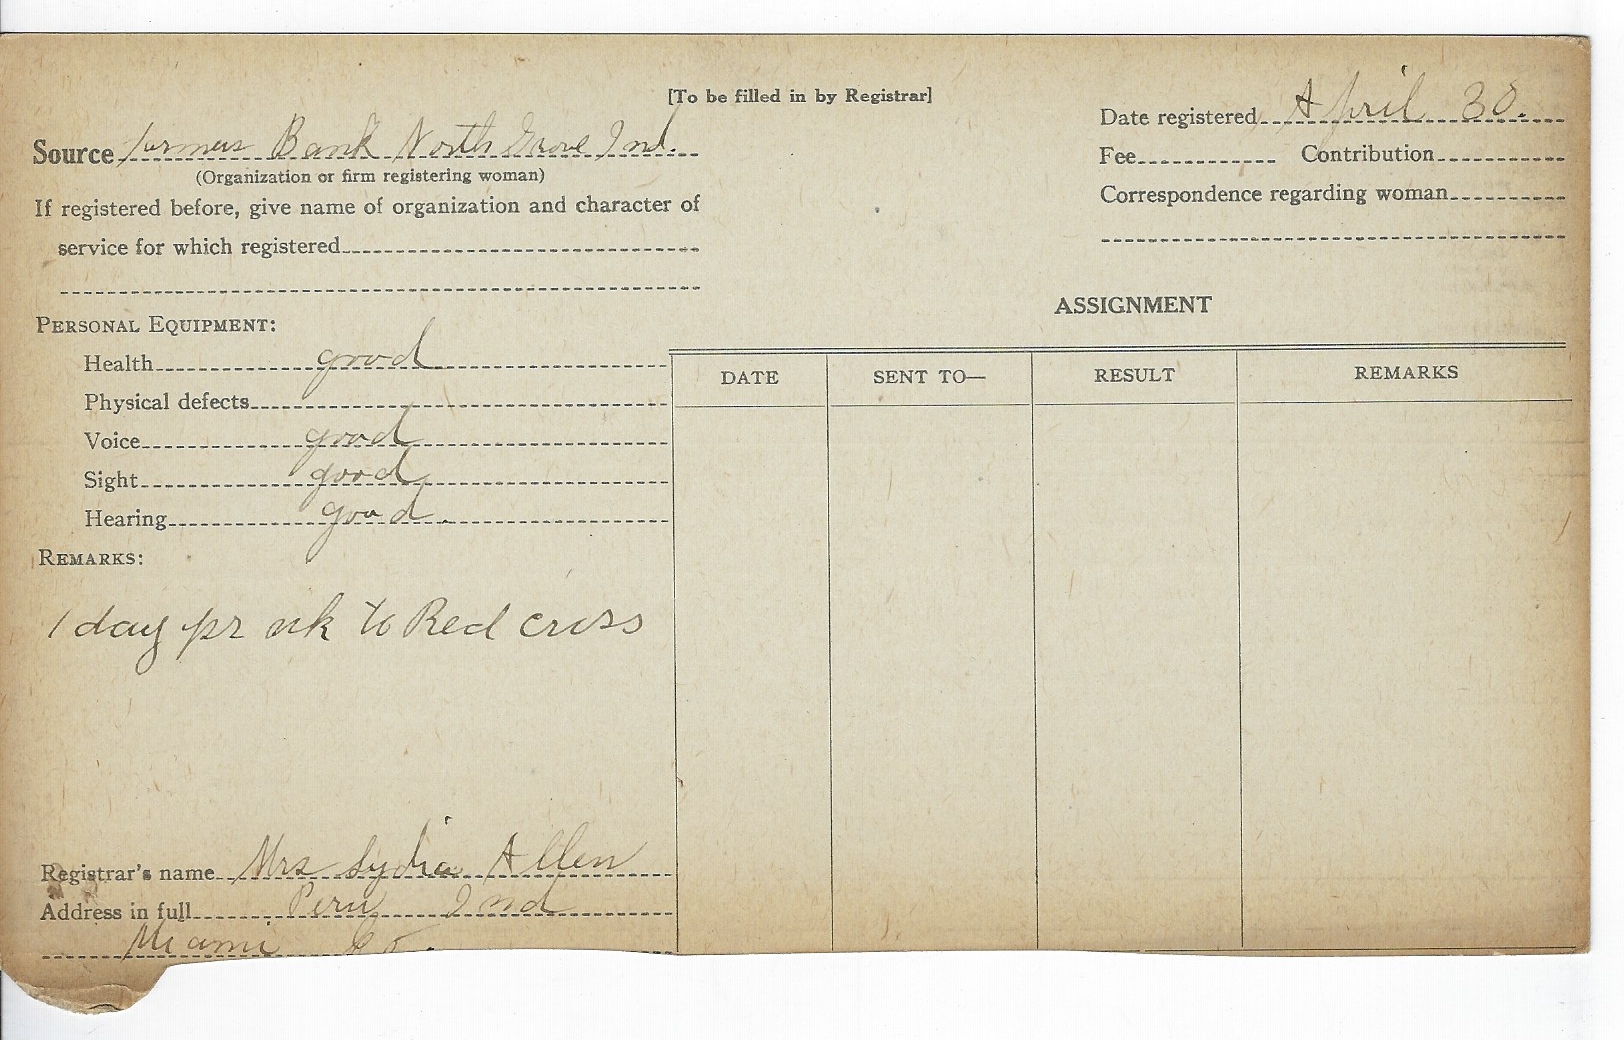 [To be filled in by Registrar]
Source Farmers Bank North Grove Ind.
(Organization or firm registering woman)
If registered before, give name of organization and character of
service for which registered
PERSONAL EQUIPMENT:
Health good
Physical defects
Voice good
Sight good
Hearing good.
REMARKS:
1 day pr wk to Red cross
Registrar's name Mrs Lydia Allen
Address in full Peru Ind
Miami Co.
Date registered April 30.
Fee Contribution
Correspondence regarding woman
ASSIGNMENT
DATE SENT TO— RESULT REMARKS